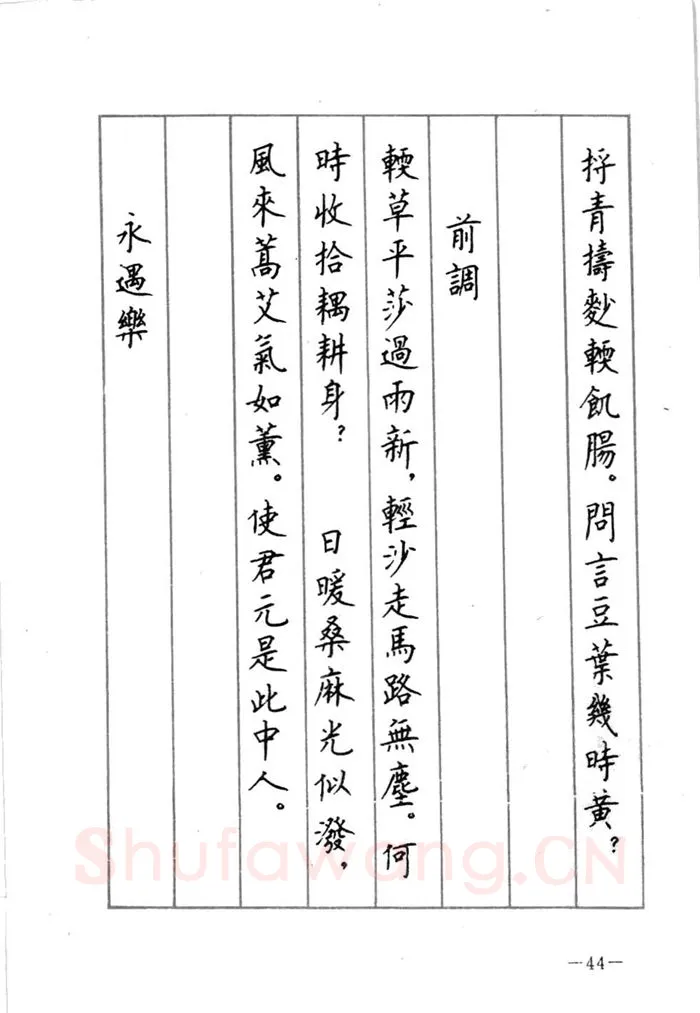 捋青擣麨輭飢腸。問言豆葉幾時黃?
前調
輭草平莎過雨新,輕沙走馬路無塵。何
時收拾耦耕身? 日暖桑麻光似潑,
風來蒿艾氣如薰。使君元是此中人。
永遇樂
Shufawang.CN
—44—